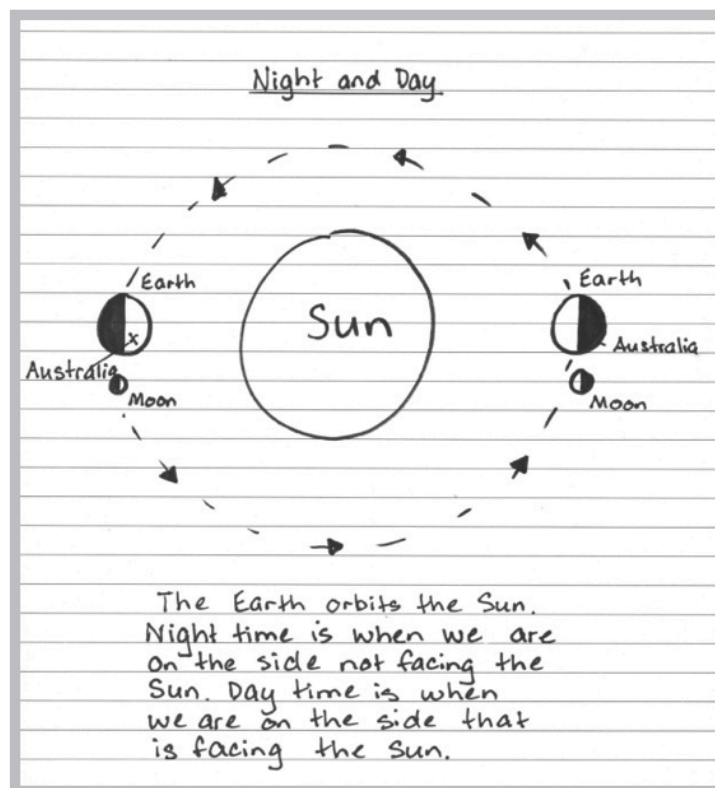 Night and Day
Earth
Earth
Sun
x
Australia
Australia
Moon
Moon
The Earth orbits the Sun.
Night time is when we are
on the side not facing the
Sun. Day time is when
we are on the side that
is facing the Sun.